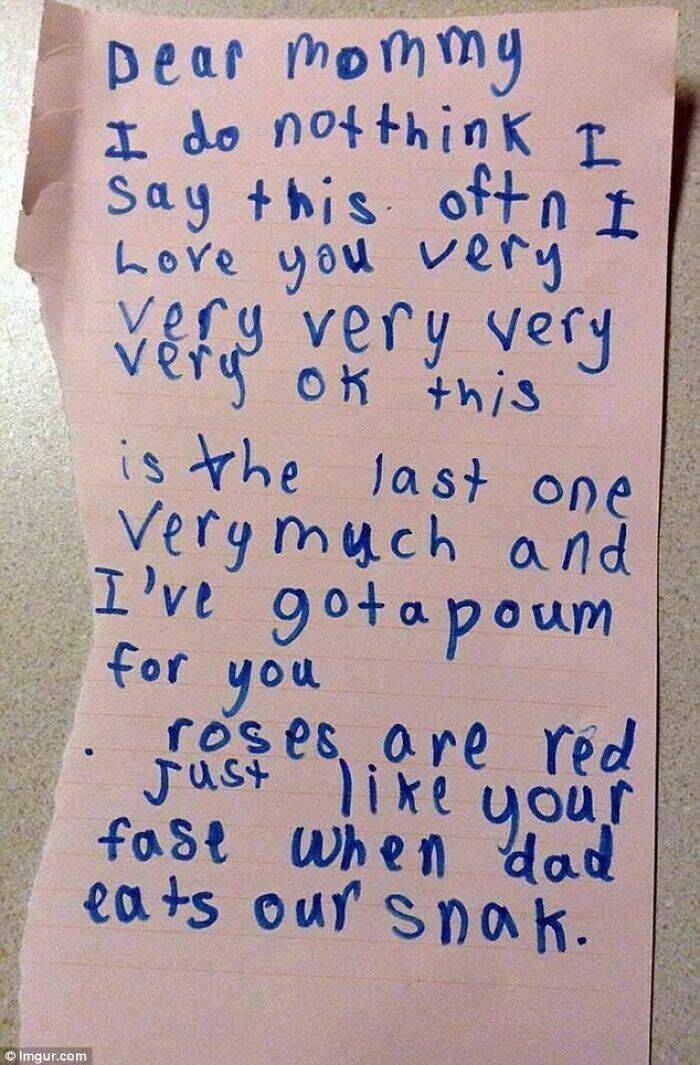 Dear mommy
I do not think I
say this oftn I
Love you very
very very very
very ok this
is the last one
very much and
I've got a poum
for you
. roses are red
Just like your
fase when dad
eats our snak.
© Imgur.com